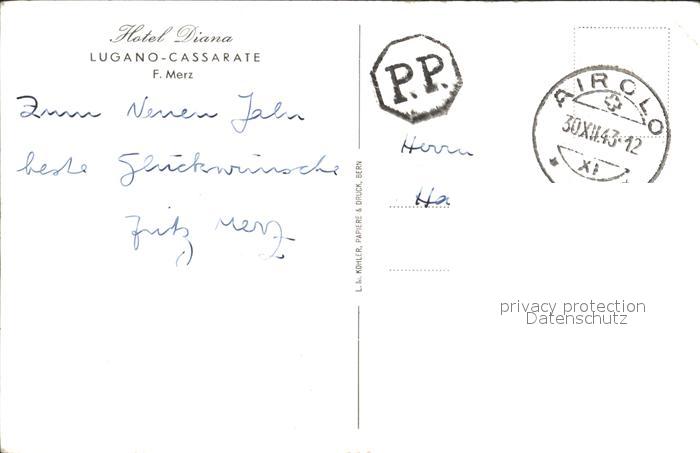 Hotel Diana
LUGANO-CASSARATE
F. Merz
Zum Neuen Jahr
beste Glückwünsche
Fritz Merz
L. & KOHLER, PAPIERE & DRUCK, BERN
P.P.
AIROLO
30XII.43-12
XI
Herrn
Ha
privacy protection
Datenschutz